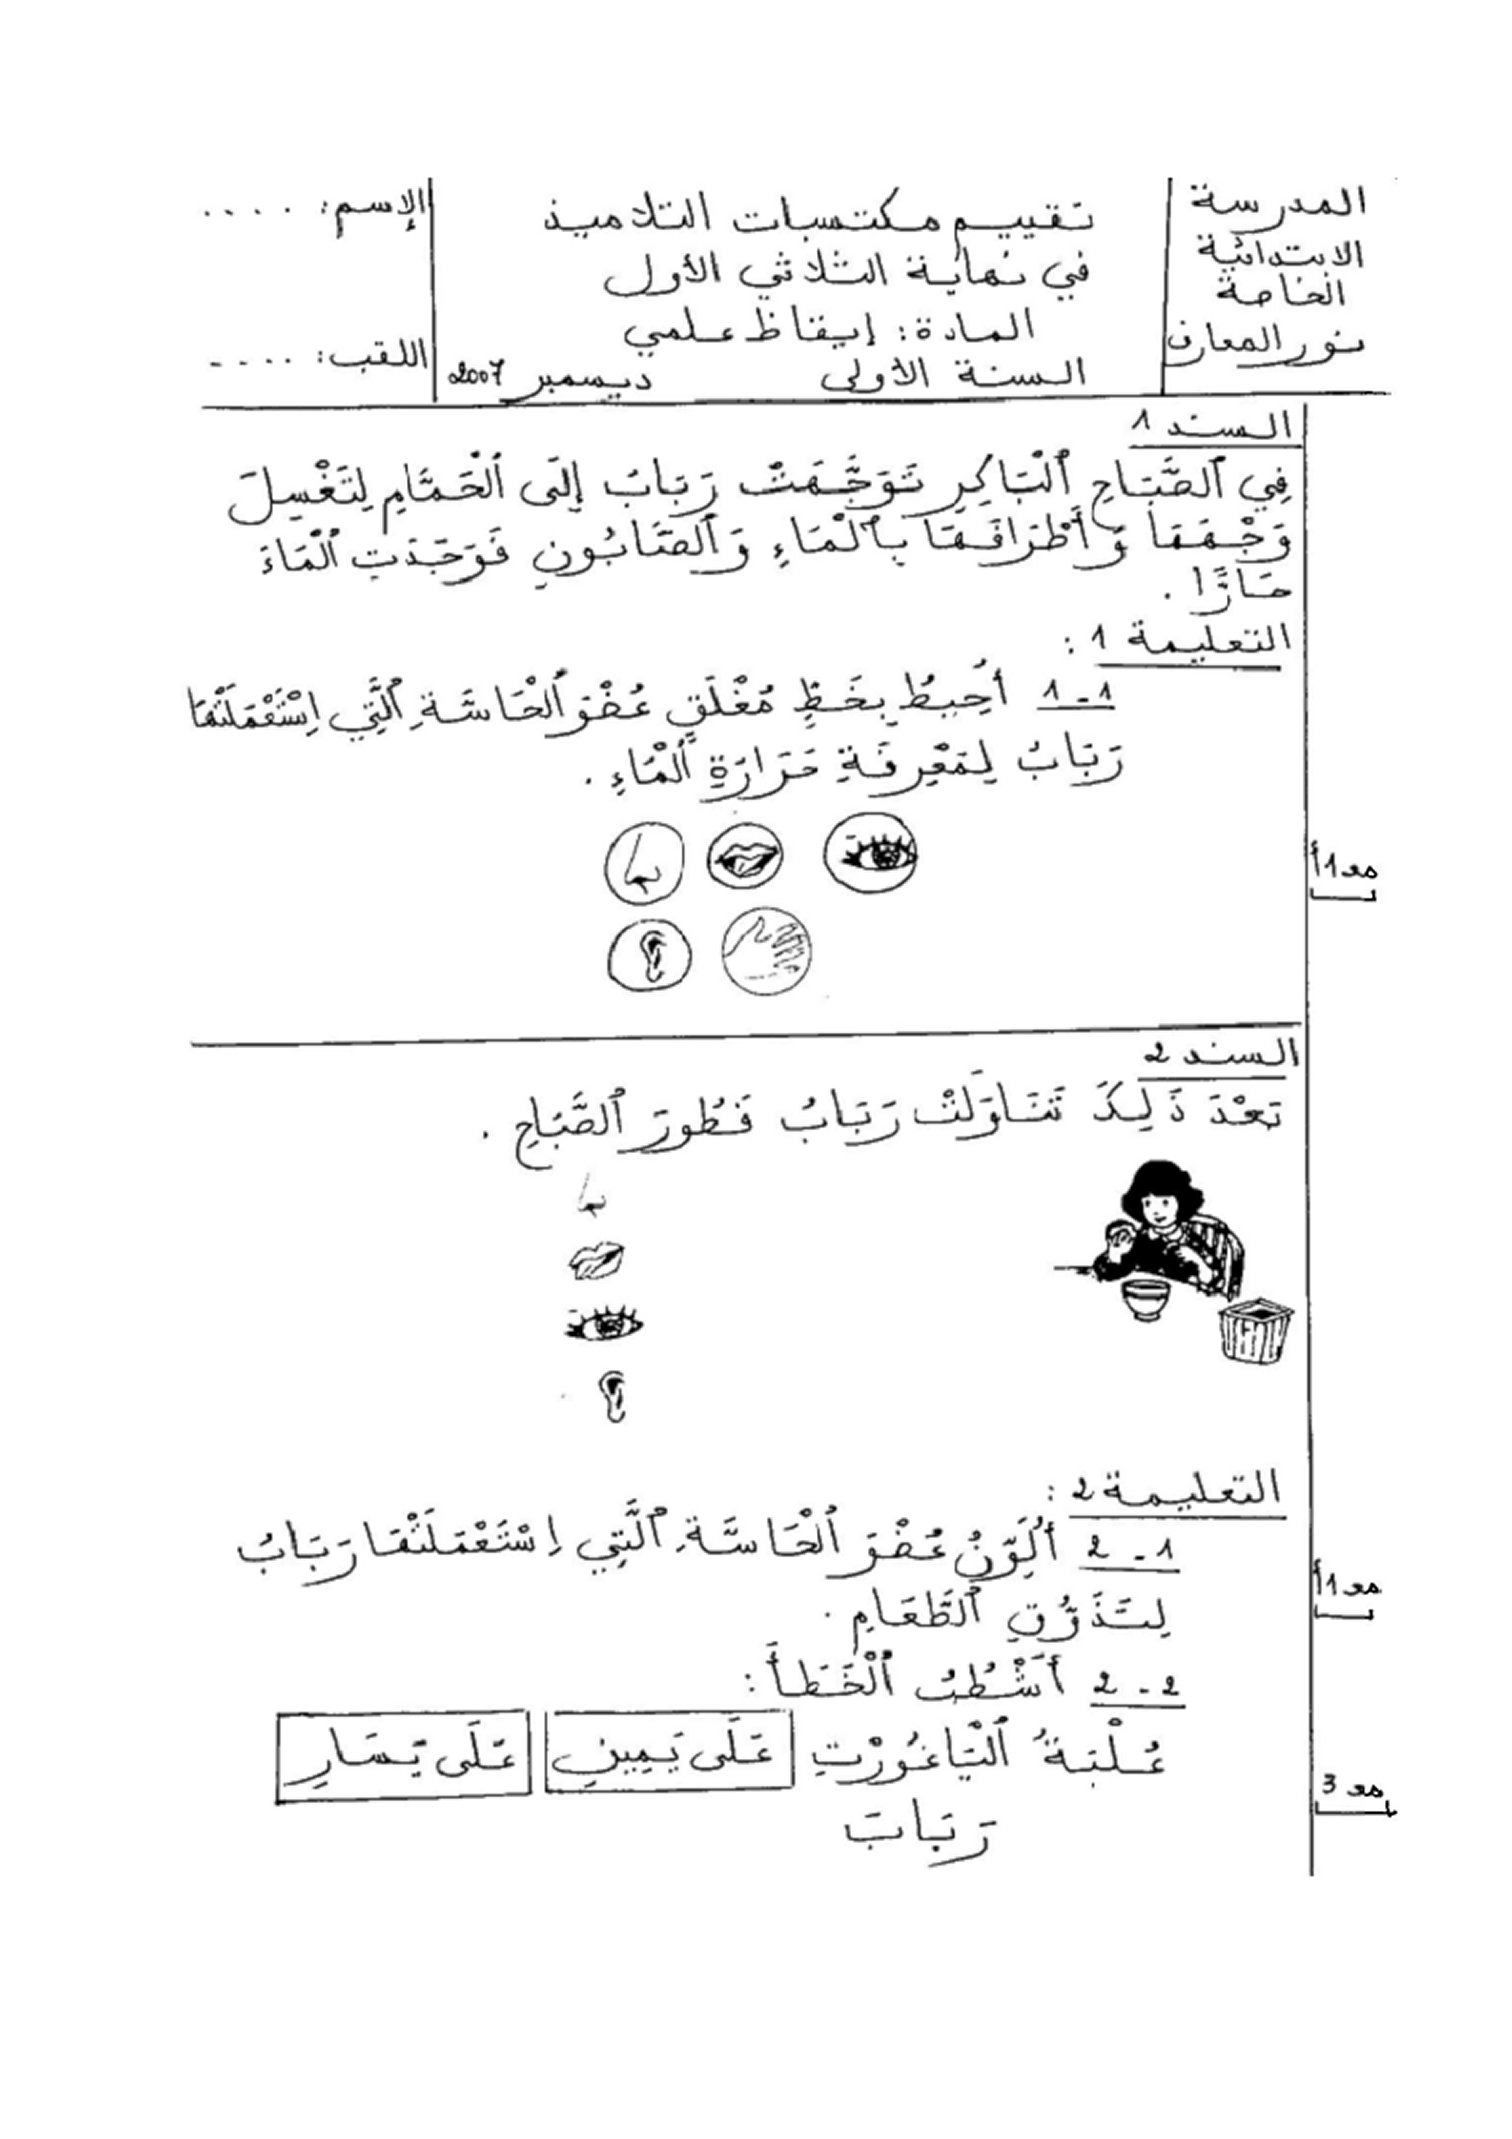 المدرسة
الابتدائية
الخاصة
نور المعارف
تقييم مكتسبات التلاميذ
في نهاية الثلاثي الأول
المادة: إيقاظ علمي
السنة الأولى ديسمبر 2007
الإسم: ....
اللقب: ....
السند 1
فِي ٱلصَّبَاحِ ٱلْبَاكِرِ تَوَجَّهَتْ رَبَابُ إِلَى ٱلْحَمَّامِ لِتَغْسِلَ
وَجْهَهَا وَأَطْرَافَهَا بِٱلْمَاءِ وَٱلصَّابُونِ فَوَجَدَتِ ٱلْمَاءَ
حَارًّا .
التعليمة 1 :
1 - 1 أُحِيطُ بِخَطٍّ مُغْلَقٍ عُضْوَ ٱلْحَاسَّةِ ٱلَّتِي اِسْتَعْمَلَتْهَا
رَبَابُ لِمَعْرِفَةِ حَرَارَةِ ٱلْمَاءِ .
مع 1 أ
السند 2
بَعْدَ ذَلِكَ تَنَاوَلَتْ رَبَابُ فَطُورَ ٱلصَّبَاحِ .
التعليمة 2 :
2 - 1 أُلَوِّنُ عُضْوَ ٱلْحَاسَّةِ ٱلَّتِي اِسْتَعْمَلَتْهَا رَبَابُ
لِتَذَوُّقِ ٱلطَّعَامِ .
مع 1 أ
2 - 2 أَشْطُبُ ٱلْخَطَأَ :
عُلْبَةُ ٱلْيَاغُورْتِ عَلَى يَمِينِ عَلَى يَسَارِ
رَبَابَ
مع 3